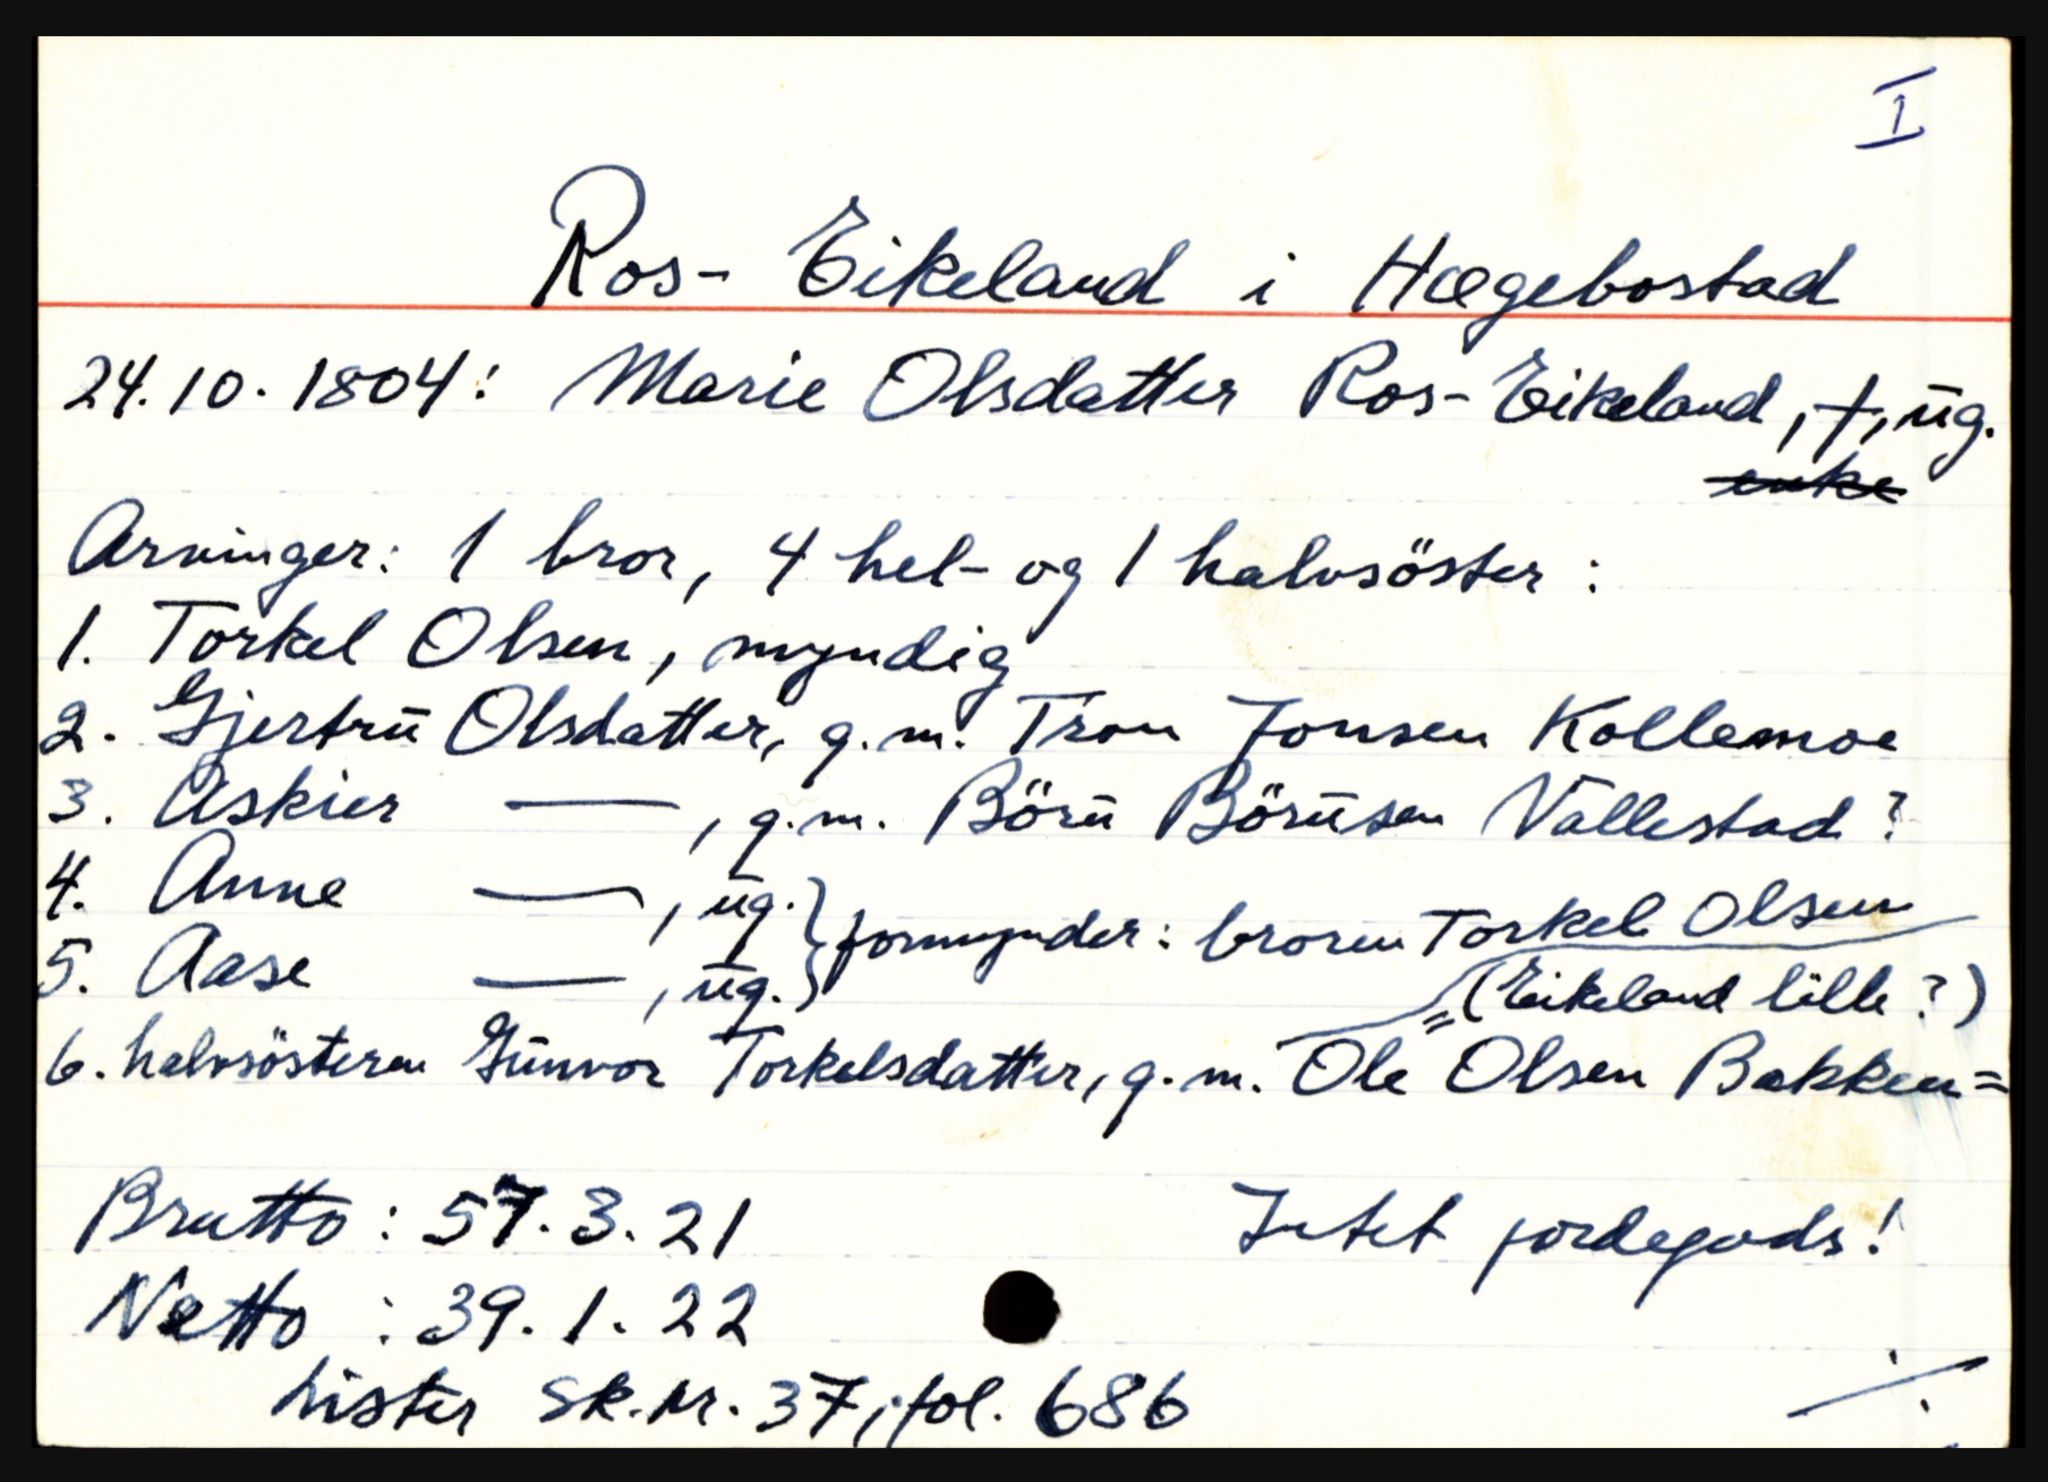 I
Ros- Eikeland i Hægebostad
24.10.1804: Marie Olsdatter Ros-Eikeland, †, ūg.
enke
Arvinger: 1 bror, 4 hel- og 1 halvsöster:
1. Torkel Olsen, myndig
2. Gjertrū Olsdatter, g.m. Tron Jonsen Kollemoe
3. Askier —, g.m. Börū Börūsen Vallestad?
4. Anne —, ūg. } formynder: broren Torkel Olsen
5. Aase —, ūg.
= (Eikeland lille?)
6. halvsösteren Gūnvor Torkelsdatter, g.m. Ole Olsen Bakken=
Brutto: 57.3.21 Intet jordegods!
Netto: 39.1.22
Lister sk.nr. 37, fol. 686